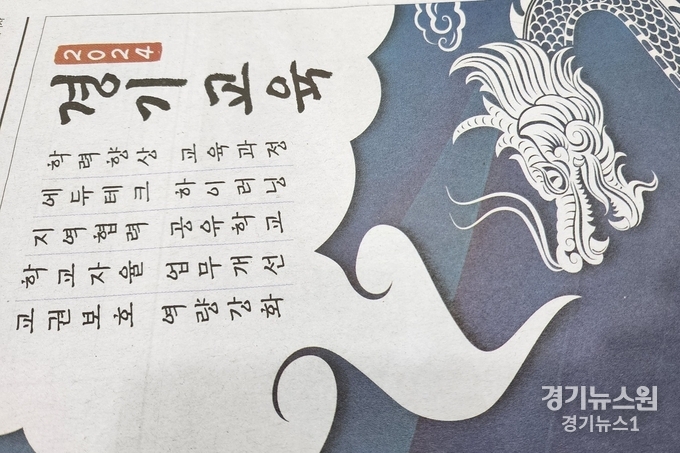 2024
경기교육
학력향상 교육과정
에듀테크 하이러닝
지역협력 공유학교
학교자율 업무개선
교권보호 역량강화
경기뉴스원
경기뉴스1